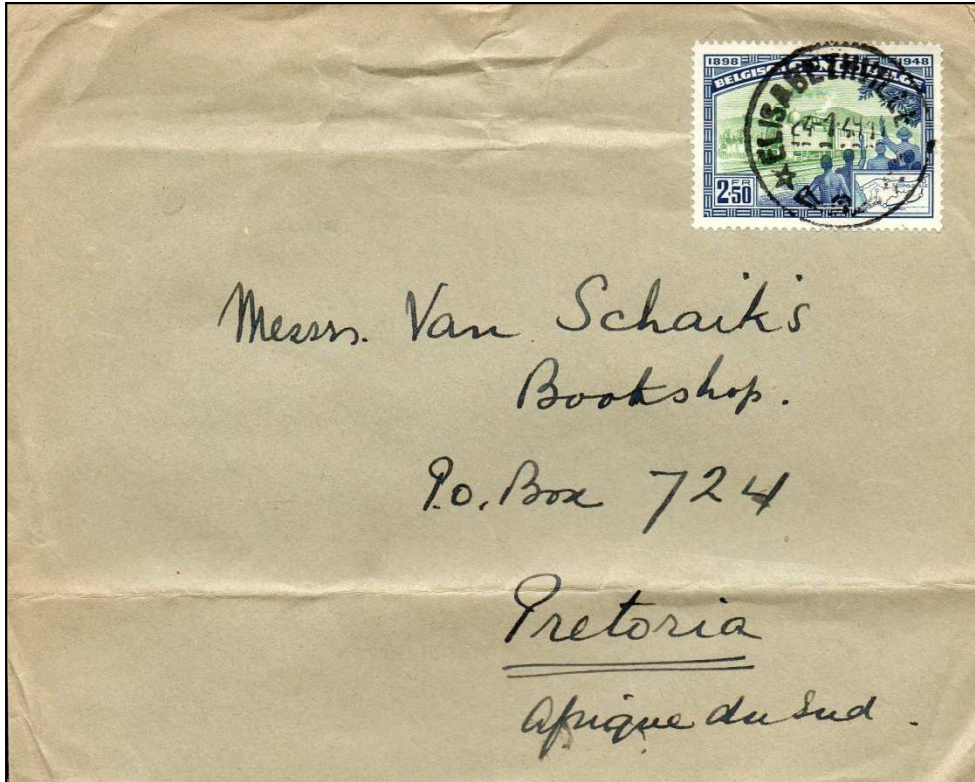 1898 1948
BELGISCH CONGO BELGE
ELISABETHVILLE
2.50 FR
Messrs. Van Schaik's
Bookshop.
P.O. Box 724
Pretoria
Afrique du Sud.